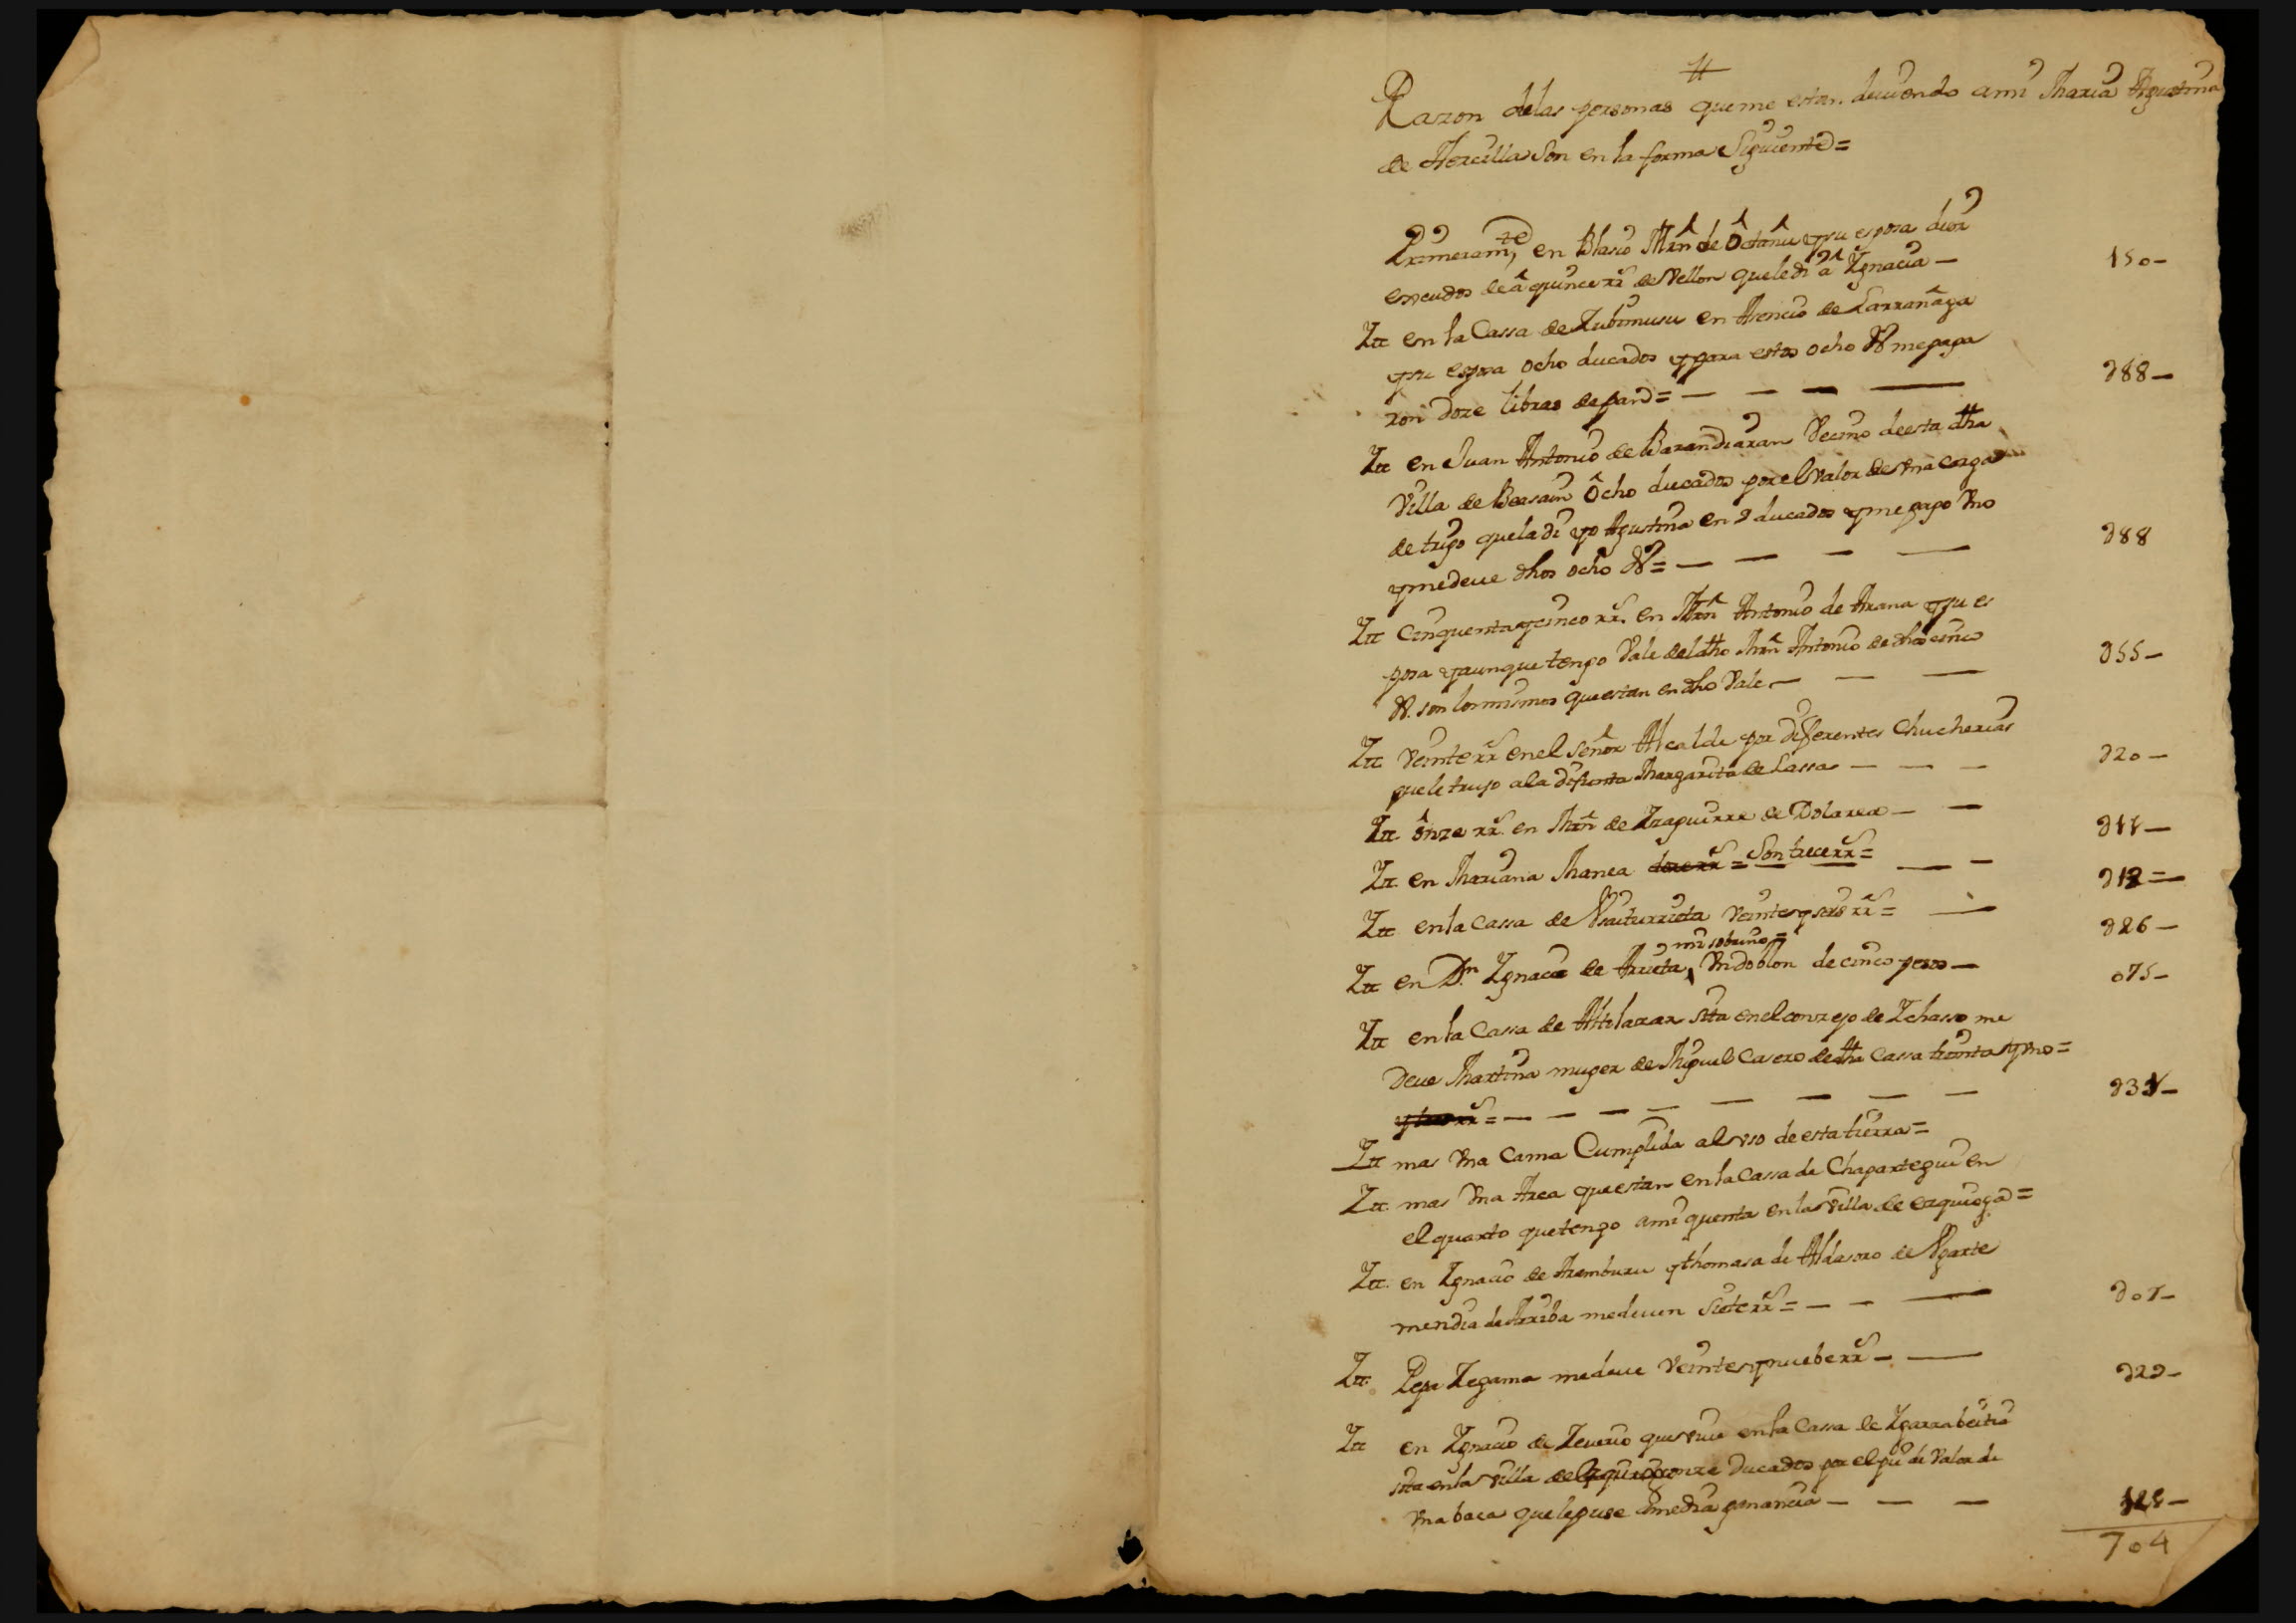 Razon delas personas queme estan deuiendo ami Maria Agustina
de Hercilla Son en la forma Siguiente =
Primeramte, en Blasio Mrn de Otanu ysu esposa diez
escudos de â quince rrs de Vellon quele di â Ygnacia — 150 —
Itt en la Cassa de Zubimusu en Asencio de Larrañaga
ysu espsa ocho ducados ypara estos ocho Ds me paga
ron doze libras de pan = — — — — 088 —
Itt en Juan Antonio de Barandiaran Vecino deesta dha
Villa de Beasain Ôcho ducados porel Valor de vna carga
de trigo quela di yo Agustina en 9 ducados yme pago Vno
ymedeue dhos ocho Ds = — — — — 088
Itt Cinquenta ycinco rrs. en Mrn Antonio de Arana ysu es
posa yaunque tengo Vale deldho Mrn Antonio de dhos cinco
Ds. son losmismos queestan en dho Vale — — — 055 —
Itt Veinte rrs enel Señor Alcalde por diferentes chucherias
quele trujo ala difunta Margarita de Lassa — — — 020 —
Itt ônze rrs en Mrn de Yzaguirre de Dolarea — — 011 —
Itt en Mariana Manea doze rrs = Son trece rrs = — — 013 =
Itt enla Cassa de Vsaiturrieta Veinte yseis rrs = — 026 —
mi sobrino =
Itt en Dn Ygnacio de Arrieta, Vn doblon de cinco pesos — 075 —
Itt en la Cassa de Altolarar sita enel conzejo de Ychasso me
Deue Martina muger de Miguel Casero dedha Cassa treinta yvno =
y tres rrs = — — — — — — — — 031 —
Itt mas Vna Cama Cumplida al vso de esta tierra =
Itt mas Vna Arca queestan en la Cassa de Chapartegui en
el quarto quetengo ami quenta en la Villa de ezquioga =
Itt en Ygnacio de Aramburu ythomasa de Aldasoro de Vgarte
mendia de Arriba medeuen Siete rrs = — — — 007 —
Itt Pepa Zegama medeue Veinte ynuebe rrs — — 029 —
Itt en Ygnacio de Zeuerio que viue en la Cassa de Ygarzabeitia
sita en la Villa de Ezquioga onze Ducados por el pu de Valor de
vna baca quele puse amedia ganancia — — — 121 —
704